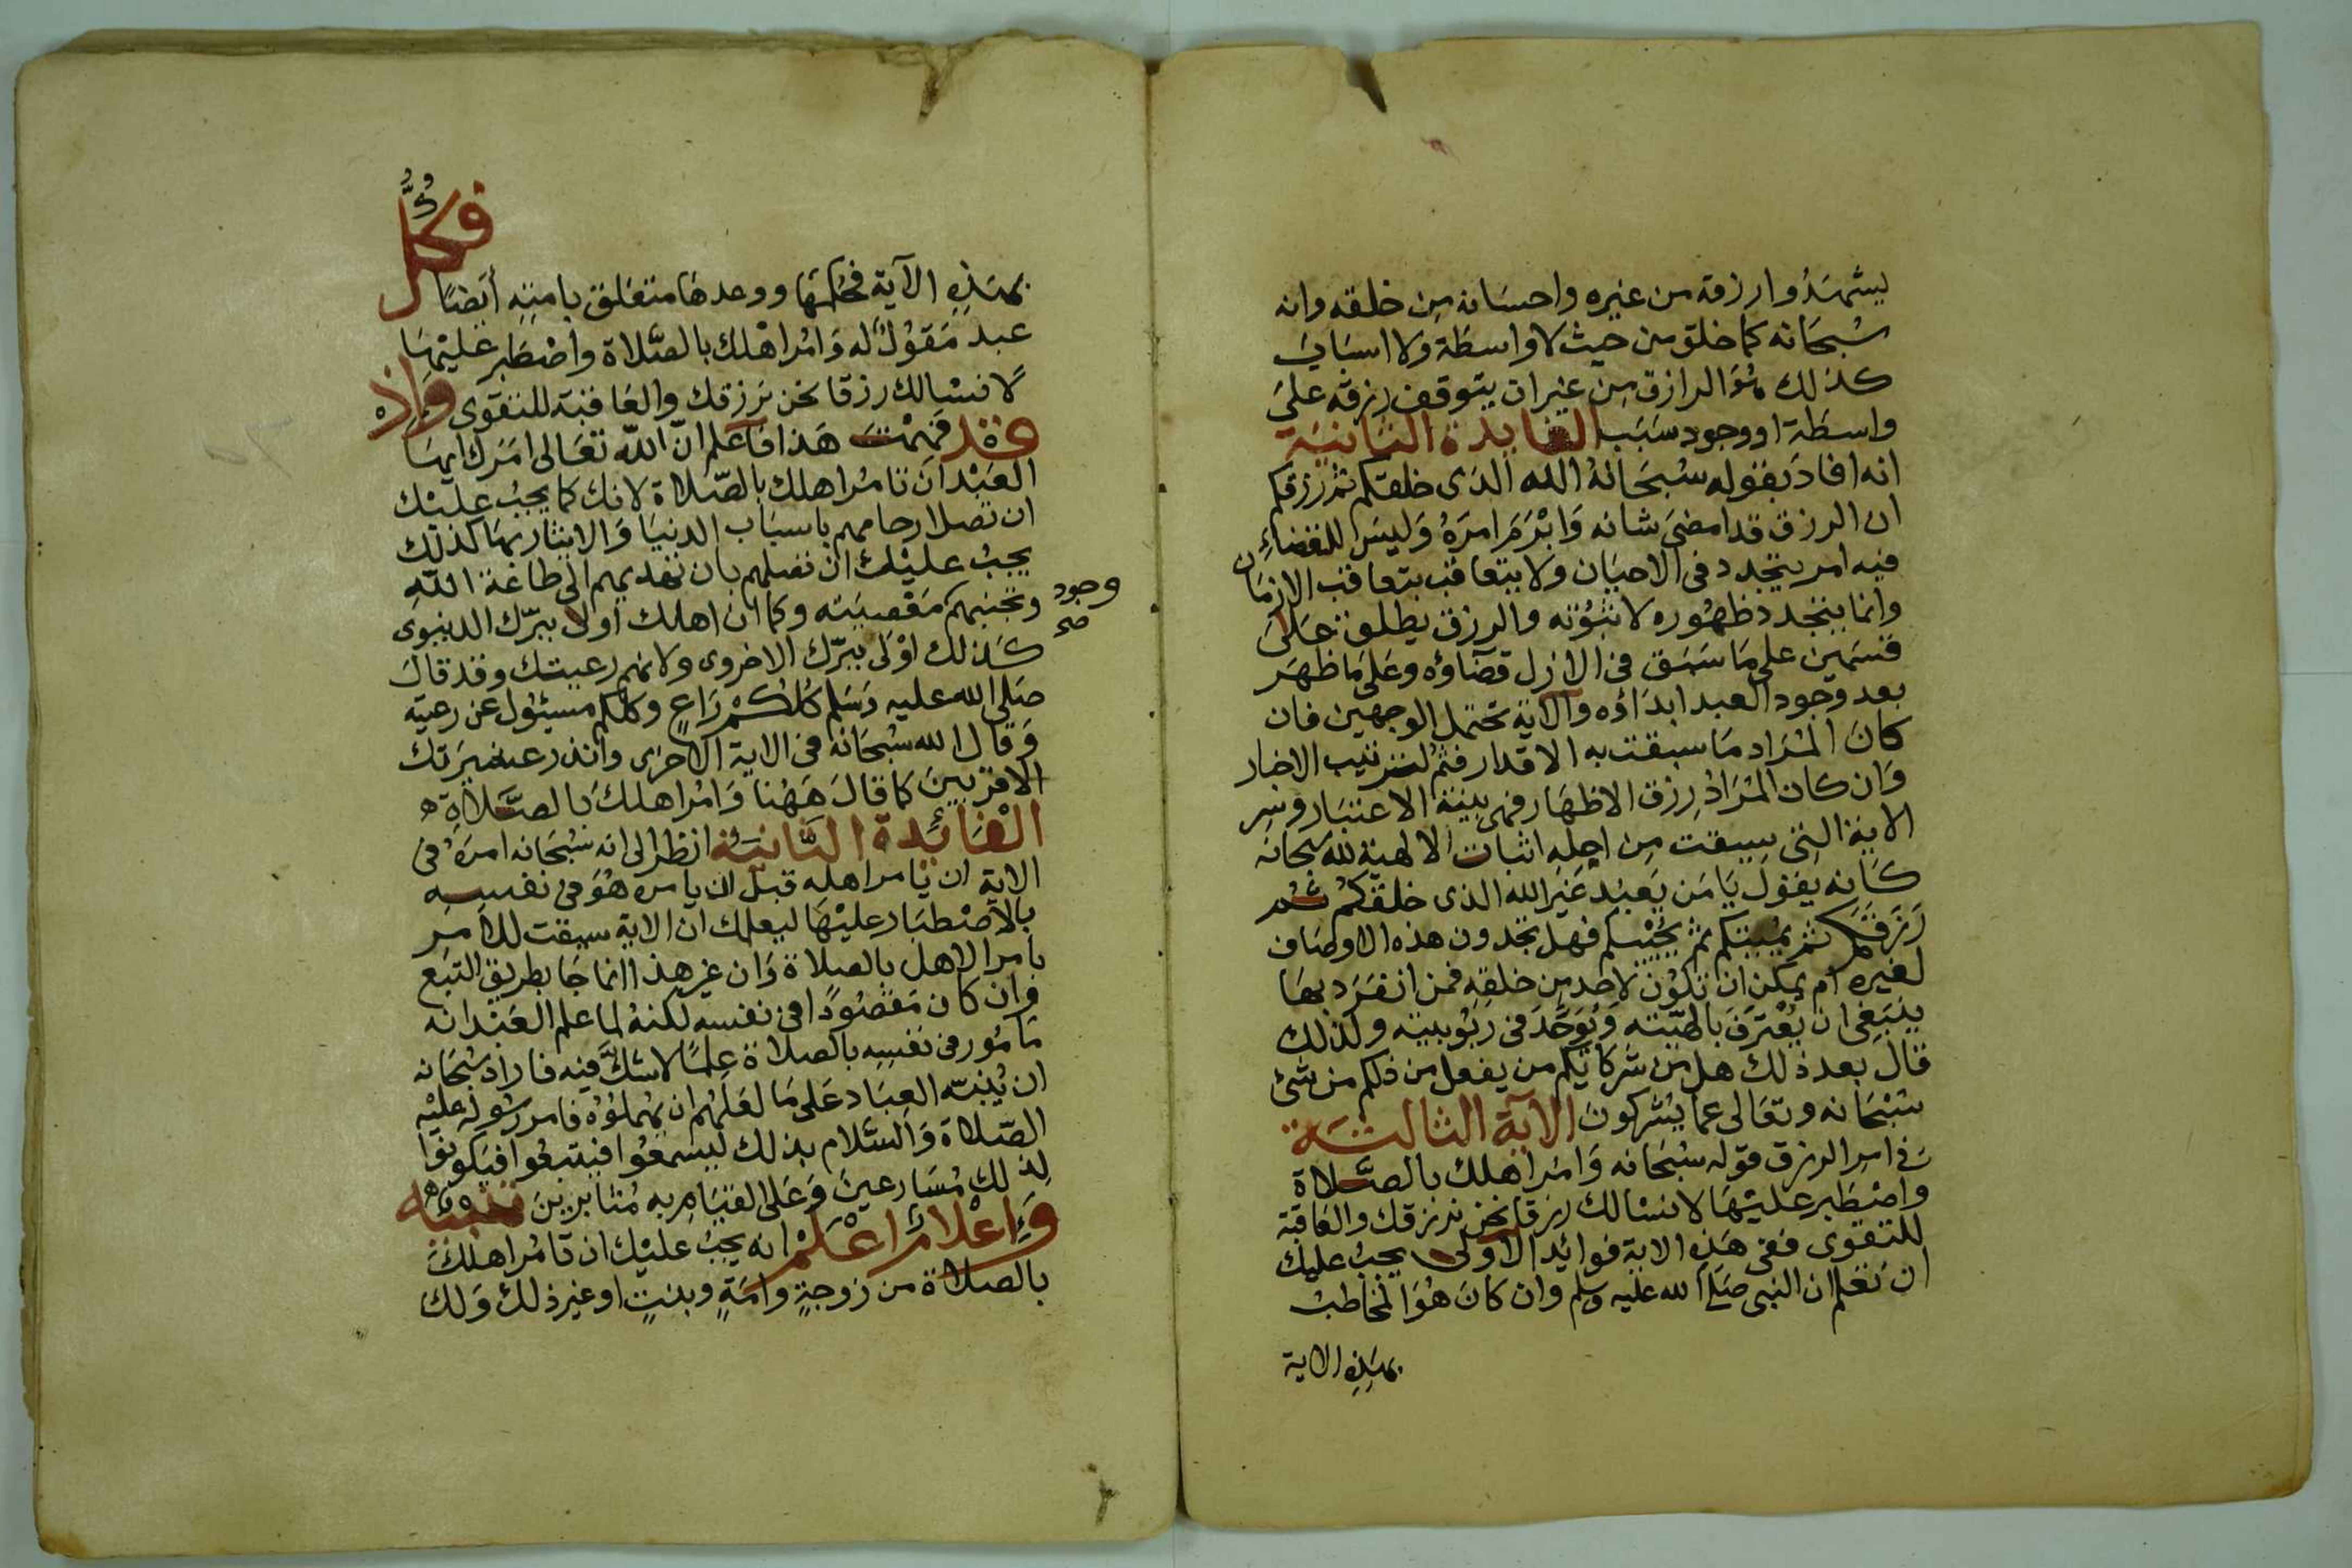 يشهدوا رزقه من غيره واحسانه من خلقه وانه
سبحانه كما خلق من حيث لا واسطة ولا اسباب
كذلك هو الرازق من غير ان يتوقف رزقه على
واسطة او وجود سبب الفايدة الثانية
انه افاد بقوله سبحانه الله الذى خلقكم ثم رزقكم
ان الرزق قد امضى شانه وابرم امره وليس للقضاء
فيه امر يتجدد فى الاحيان ولا يتعاقب بتعاقب الازمان
وانما يتجدد ظهوره لا ثبوته والرزق يطلق على
قسمين على ما سبق فى الازل قضاؤه وعلى ما ظهر
بعد وجود العبد ابداؤه والاية تحتمل الوجهين فان
كان المراد ما سبقت به الاقدار فثم لترتيب الاخبار
وان كان المراد رزق الاظهار فهى بينة الاعتبار وسر
الاية التى سيقت من اجله اثبات الالهية لله سبحانه
كانه يقول يا من يعبد غير الله الذى خلقكم ثم
رزقكم ثم يميتكم ثم يحييكم فهل تجدون هذه الاوصاف
لغيره ام يمكن ان تكون لاحد من خلقه فمن انفرد بها
ينبغى ان يعترف بالهيته ويوحد فى ربوبيته ولذلك
قال بعد ذلك هل من شركائكم من يفعل من ذلكم من شئ
سبحانه وتعالى عما يشركون الاية الثالثة
فى امر الرزق قوله سبحانه وامر اهلك بالصلاة
واصطبر عليها لا نسالك رزقا نحن نرزقك والعاقبة
للتقوى ففى هذه الاية فوائد الاولى يجب عليك
ان تعلم ان النبى صلى الله عليه وسلم وان كان هو المخاطب
بهذه الاية
بهذه الاية فحكمها ووعدها متعلق بامته ايضا فكل
عبد مقول له وامر اهلك بالصلاة واصطبر عليها
لا نسالك رزقا نحن نرزقك والعاقبة للتقوى واذ
قد فهمت هذا فاعلم ان الله تعالى امرك ايها
العبد ان تامر اهلك بالصلاة لانك كما يجب عليك
ان تصل ارحامهم باسباب الدنيا والايثار بها كذلك
يجب عليك ان تصلهم بان تهديهم الى طاعة الله
وتجنبهم وجود صح معصيته وكما ان اهلك اولى ببرك الدنيوى
كذلك اولى ببرك الاخروى ولانهم رعيتك وقد قال
صلى الله عليه وسلم كلكم راع وكلكم مسئول عن رعيته
وقال الله سبحانه فى الاية الاخرى وانذر عشيرتك
الاقربين كما قال ههنا وامر اهلك بالصلاة
الفائدة الثانية انظر الى انه سبحانه امره فى
الاية ان يامر اهله قبل ان يامره هو فى نفسه
بالاصطبار عليها ليعلمك ان الاية سيقت للامر
بامر الاهل بالصلاة وان غير هذا انما جا بطريق التبع
وان كان مقصودا فى نفسه لكنه لما علم العبد انه
مامور فى نفسه بالصلاة علما لا شك فيه فاراد سبحانه
ان ينبه العباد على ما لعلهم ان يهملوه فامر رسوله عليه
الصلاة والسلام بذلك ليسمعوا فيتبعوا فيكونوا
لذلك مسارعين وعلى القيام به مثابرين تنبيه
واعلام اعلم انه يجب عليك ان تامر اهلك
بالصلاة من زوجة وامة وبنت او غير ذلك ولك